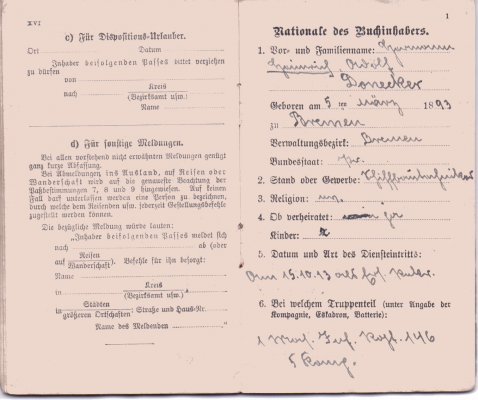 XVI
c) Für Dispositions-Urlauber.
Ort Datum
Inhaber beifolgenden Passes bittet verziehen
zu dürfen
von
Kreis
nach
(Bezirksamt usw.)
Name
d) Für sonstige Meldungen.
Bei allen vorstehend nicht erwähnten Meldungen genügt
ganz kurze Abfassung.
Bei Abmeldungen, ins Ausland, auf Reisen oder
Wanderschaft wird auf die genaueste Beachtung der
Paßbestimmungen 7, 8 und 9 hingewiesen. Auf keinen
Fall darf unterlassen werden eine Person zu bezeichnen,
durch welche dem Reisenden usw. jederzeit Gestellungsbefehle
zugestellt werden können.
Die bezügliche Meldung würde lauten:
„Inhaber beifolgenden Passes meldet sich
nach ab (oder
auf Reisen
Wanderschaft). Befehle für ihn besorgt:
Name
in Kreis
(Bezirksamt usw.)
in Städten
größeren Ortschaften Straße und Haus-Nr.
Name des Meldenden ."
1
Nationale des Buchinhabers.
1. Vor- und Familienname: Hermann
Heinrich Adolf
Donecker
Geboren am 5 ten März 1893
zu Bremen
Verwaltungsbezirk: Bremen
Bundesstaat:
2. Stand oder Gewerbe:
3. Religion:
4. Ob verheiratet:
Kinder:
5. Datum und Art des Diensteintritts:
Am 15.10.13 als
6. Bei welchem Truppenteil (unter Angabe der
Kompagnie, Eskadron, Batterie):
1 Inf. Regt. 146
5 Komp.